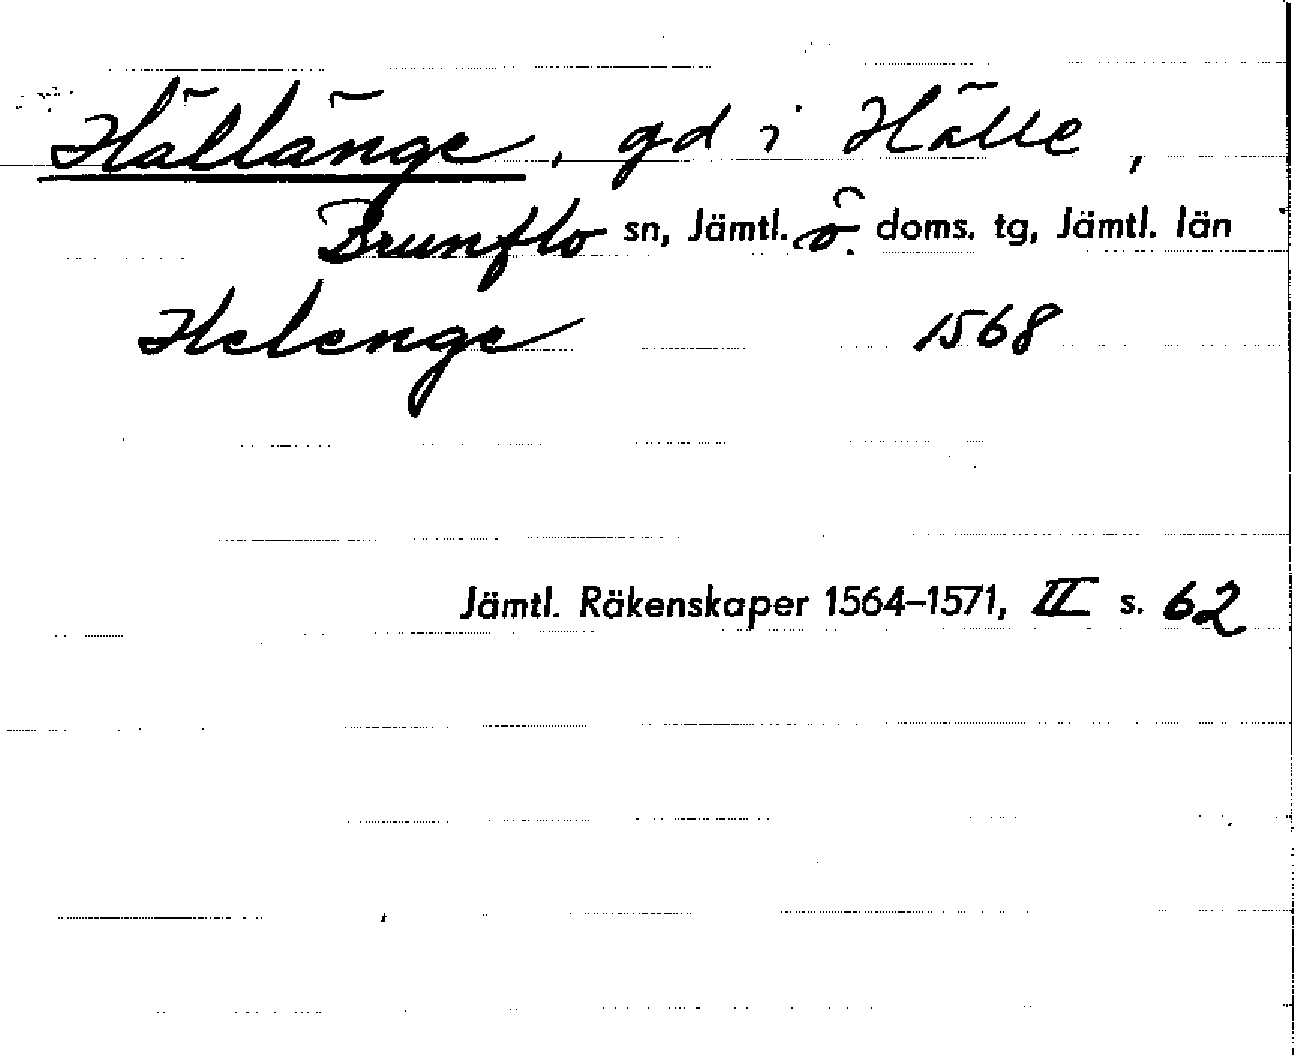 Hällänge, gd i Hälle,
Brunflo sn, Jämtl. ö. doms. tg, Jämtl. län
Helenge 1568
Jämtl. Räkenskaper 1564-1571, II s. 62